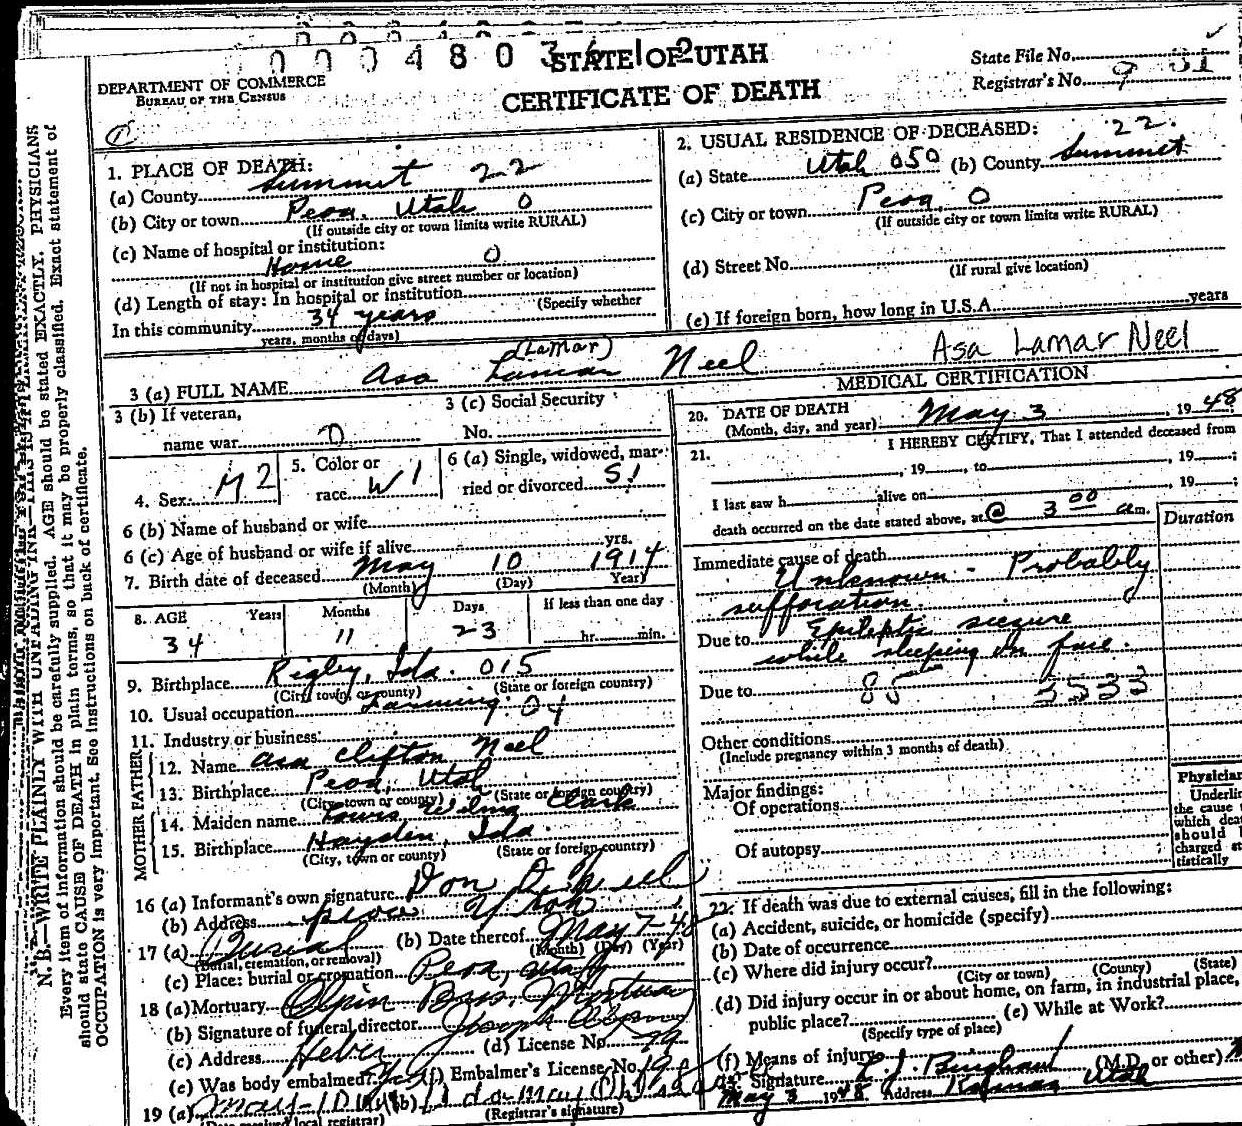 0 0 0 4 8 0 3
STATE OF UTAH
CERTIFICATE OF DEATH
DEPARTMENT OF COMMERCE
BUREAU OF THE CENSUS
State File No.
Registrar's No. 9 31
N. B.—WRITE PLAINLY WITH UNFADING INK—THIS IS
Every item of information should be carefully supplied. AGE should be stated EXACTLY. PHYSICIANS
should state CAUSE OF DEATH in plain terms, so that it may be properly classified. Exact statement of
OCCUPATION is very important. See instructions on back of certificate.
1. PLACE OF DEATH:
(a) County Summit 22
(b) City or town Peoa, Utah 0
(If outside city or town limits write RURAL)
(c) Name of hospital or institution:
Home 0
(If not in hospital or institution give street number or location)
(d) Length of stay: In hospital or institution
(Specify whether
In this community 34 years
years, months or days)
2. USUAL RESIDENCE OF DECEASED: 22.
(a) State Utah 050 (b) County Summit
(c) City or town Peoa 0
(If outside city or town limits write RURAL)
(d) Street No.
(If rural give location)
(e) If foreign born, how long in U.S.A. years
3 (a) FULL NAME Asa Lamar (LaMar) Neel
Asa Lamar Neel
3 (b) If veteran,
name war 0
3 (c) Social Security
No.
4. Sex M 2
5. Color or
race W 1
6 (a) Single, widowed, mar-
ried or divorced S 1
6 (b) Name of husband or wife
6 (c) Age of husband or wife if alive yrs.
7. Birth date of deceased May 10 1914
(Month) (Day) Year)
8. AGE Years Months Days If less than one day
34 11 23 hr. min.
9. Birthplace Rigby, Ida. 015
(City, town, or county) (State or foreign country)
10. Usual occupation Farming 04
11. Industry or business:
FATHER
12. Name Asa Clifton Neel
13. Birthplace Peoa, Utah
(City, town or county) (State or foreign country)
MOTHER
14. Maiden name Wilma Clark
15. Birthplace Hayden, Ida.
(City, town or county) (State or foreign country)
16 (a) Informant's own signature Don D. Neel
(b) Address Peoa Utah
17 (a) Burial (b) Date thereof May 7-48
(Burial, cremation, or removal) (Month) (Day) (Year)
(c) Place: burial or cremation Peoa, Utah
18 (a) Mortuary Olpin Bros. Mortuary
(b) Signature of funeral director Joseph Olpin
(c) Address Heber (d) License No. 79
(e) Was body embalmed? Yes (f) Embalmer's License No.
19 (a) May-10 1948 (b)
(Date received local registrar) (Registrar's signature)
MEDICAL CERTIFICATION
20. DATE OF DEATH
(Month, day, and year) May 3, 1948
21. I HEREBY CERTIFY, That I attended deceased from
, 19 , to , 19 ;
I last saw h alive on , 19 ;
death occurred on the date stated above, at @ 3 00 a.m.
Duration
Immediate cause of death
Unknown - Probably
suffocation.
Due to Epileptic seizure
while sleeping on face.
Due to 85 3533
Other conditions
(Include pregnancy within 3 months of death)
Major findings:
Of operations
Of autopsy
Physician
Underline
the cause
which death
should
charged
tistically
22. If death was due to external causes, fill in the following:
(a) Accident, suicide, or homicide (specify)
(b) Date of occurrence
(c) Where did injury occur?
(City or town) (County) (State)
(d) Did injury occur in or about home, on farm, in industrial place,
public place? (e) While at Work?
(Specify type of place)
(f) Means of injury
Signature (M.D. or other)
May 3 1948. Address Kamas Utah